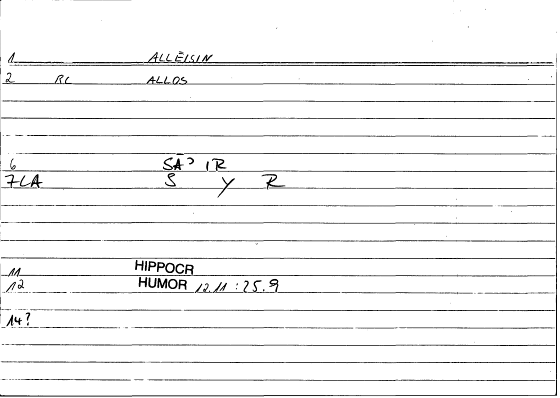 1 ALLĒISIN
2 RC ALLOS
6 SĀ IR
7LA S Y R
11 HIPPOCR
12 HUMOR 12.11 : 25.9
14?